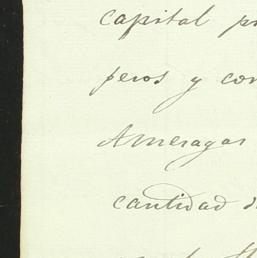 capital pr
pesos y con
Ameragas
cantidad d